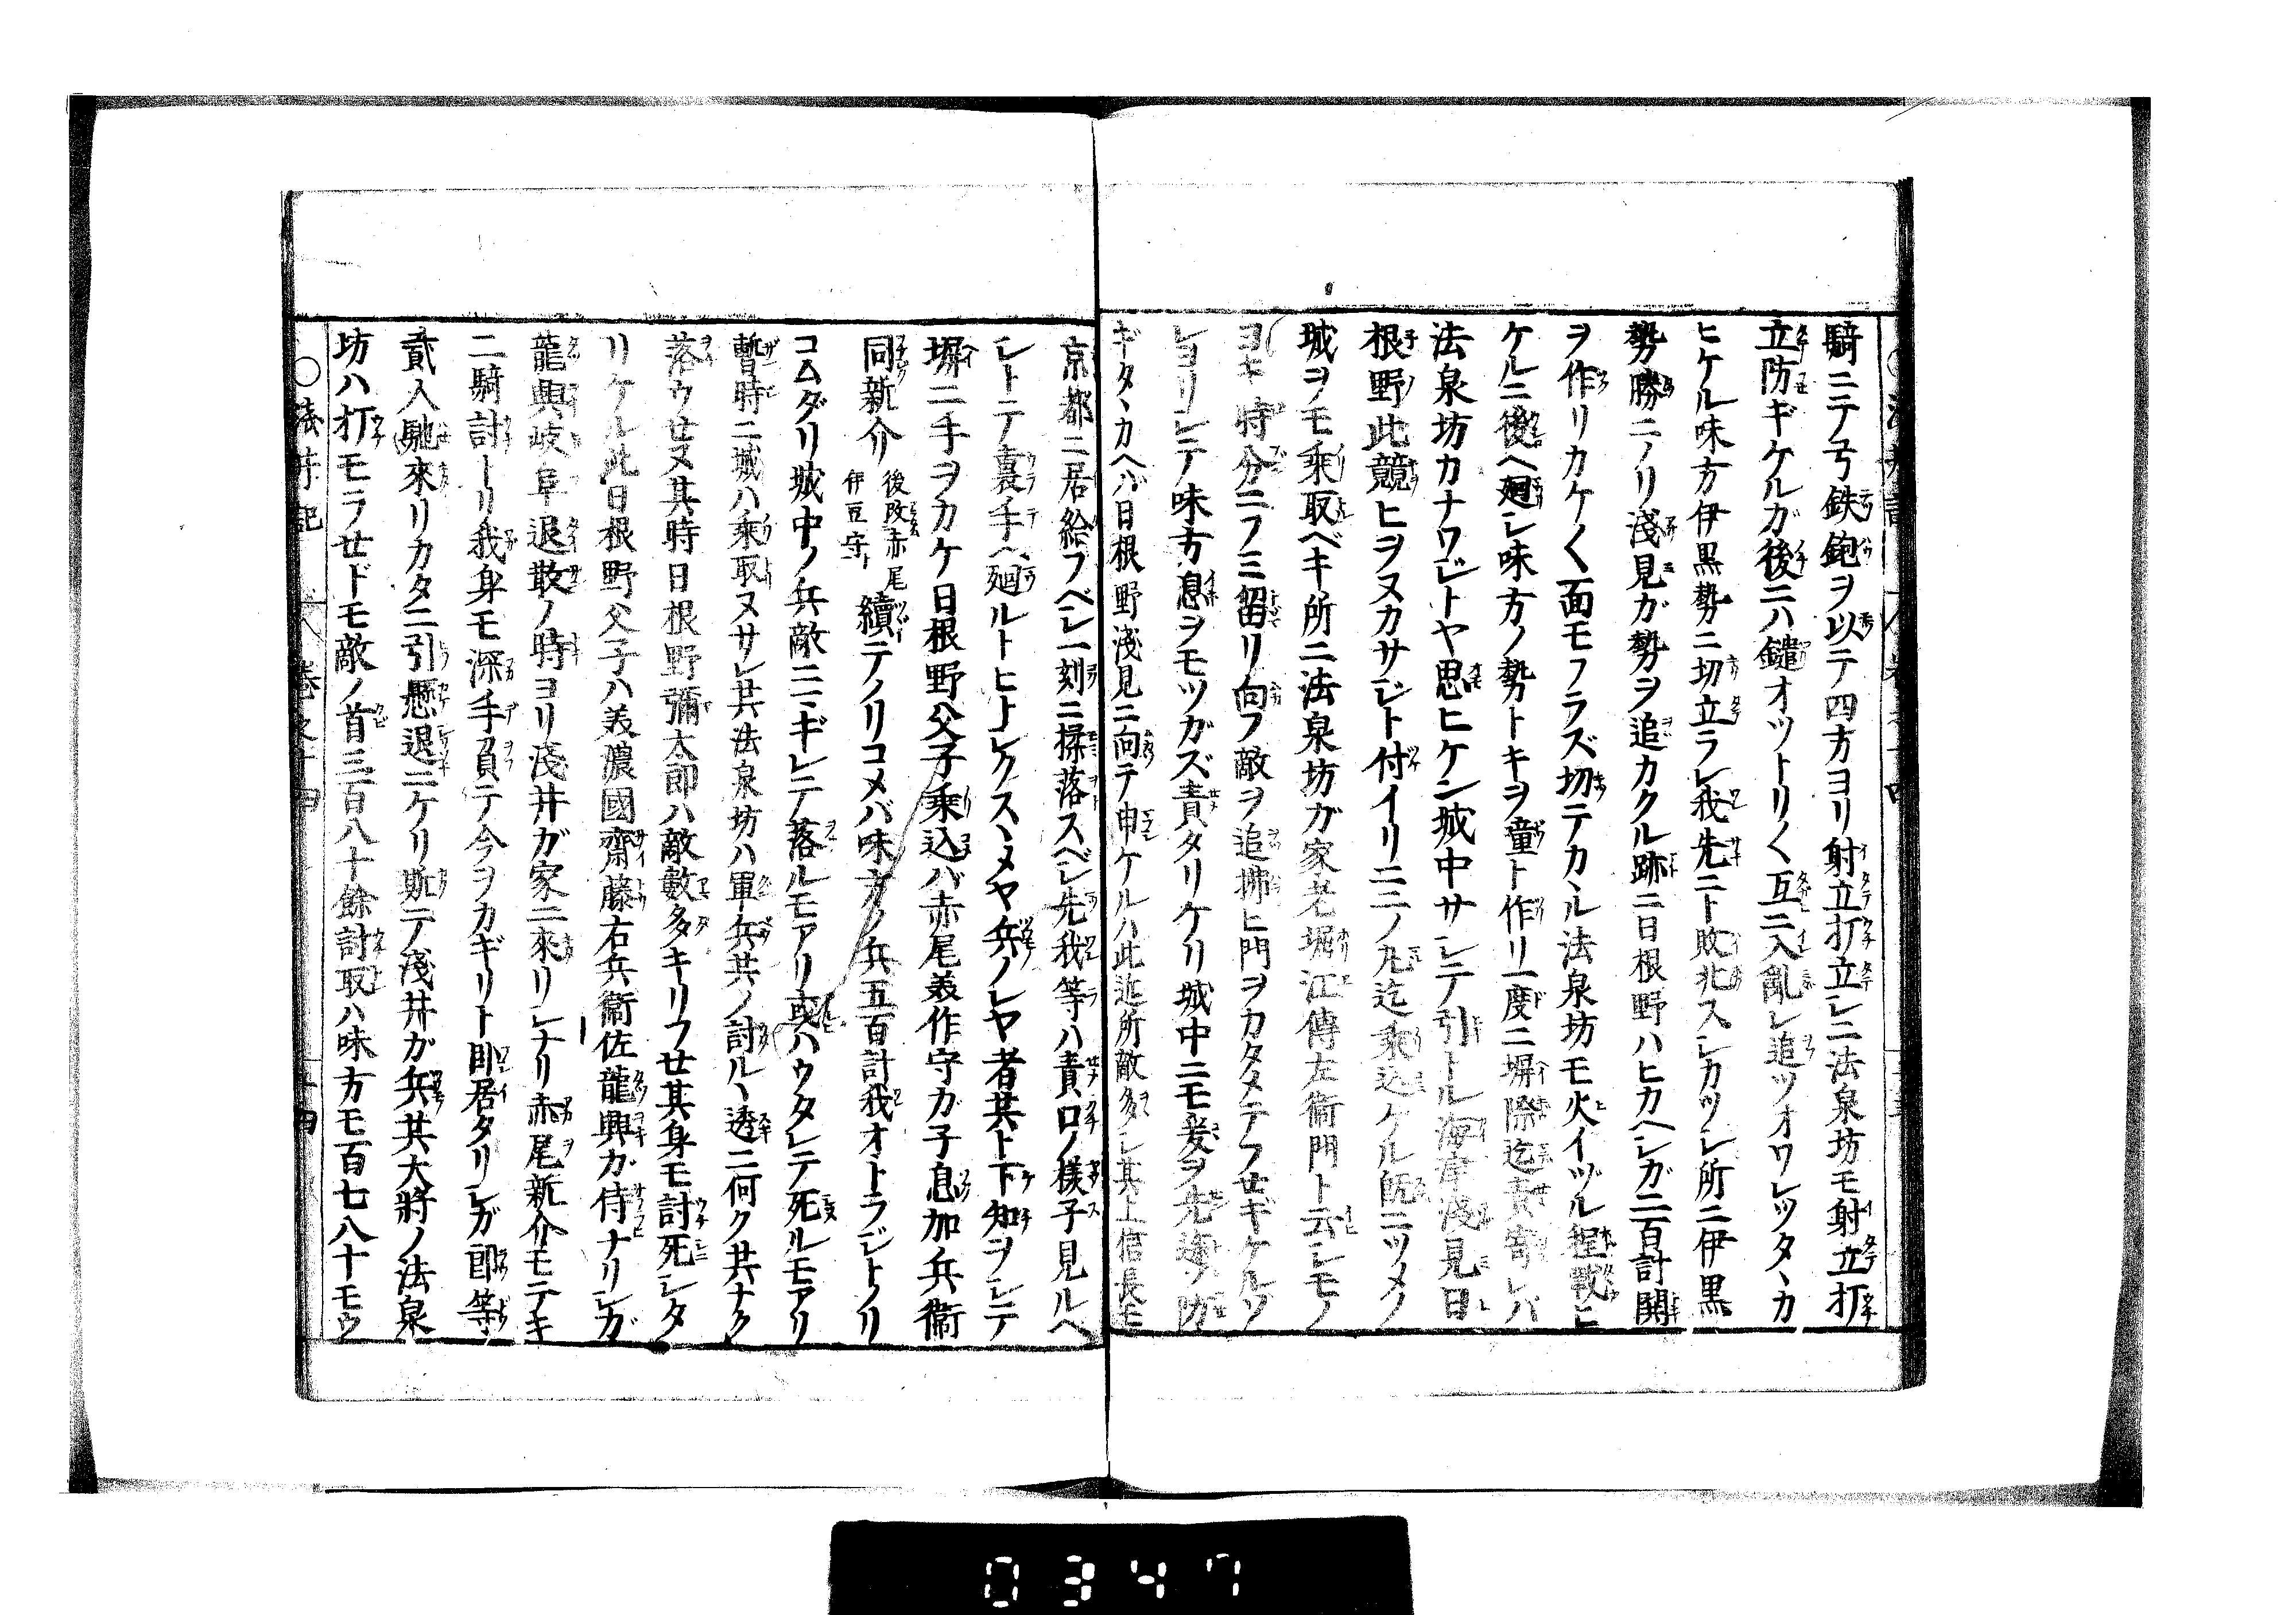 騎ニテ弓鉄鉋ヲ以テ四方ヨリ射立打立レニ法泉坊モ射立打
立防ギケルガ後ニハ鑓オツトリ〱互ニ入亂レ追ツオワレツタヽカ
ヒケル味方伊黒勢ニ切立ラレ我先ニト敗北スレカツシ所ニ伊黒
勢勝ニノリ淺見ガ勢ヲ追カクル跡ニ日根野ハヒカヘシガ二百計鬨
ヲ作リカケ〱面モフラズ切テカヽル法泉坊モ火イヅル程戰ヒ
ケルニ後ヘ廻シ味方ノ勢トキヲ童ト作リ一度ニ塀際迄責寄レバ
法泉坊カナワジトヤ思ヒケン城中サシテ引トル海津淺見日
根野此競ヒヲヌカサジト付イリニ三ノ丸迄乘込ケル既ニツメノ
城ヲモ乘取ベキ所ニ法泉坊ガ家老堀江傳左衞門ト云シモノ
ヨキ時分ニフミ留リ向フ敵ヲ追拂ヒ門ヲカタメテフセギケルソ
レヨリシテ味方息ヲモツガズ責タリケリ城中ニモ爰ヲ先途ト防
ギタヽカヘバ日根野淺見ニ向テ申ケルハ此近所敵多シ其上信長モ
京都ニ居給フベシ一刻ニ揉落スベシ先我等ハ責口ノ樣子見ルヘ
シトテ裏手ヘ廻ルトヒトシクスヽメヤ兵ノレヤ者共ト下知ヲシテ
塀ニ手ヲカケ日根野父子乘込バ赤尾美作守カ子息加兵衞
同新介後改赤尾伊豆守ト續テノリコメバ味方ノ兵五百計我オトラジトノリ
コムダリ城中ノ兵敵ニヽギレテ落ルモアリ或ハウタレテ死ルモアリ
暫時ニ城ハ乘取ヌサレ共法泉坊ハ軍兵共ノ討ルヽ透ニ何ク共ナク
落ウセヌ其時日根野彌太郎ハ敵數多キリフせ其身モ討死シタ
リケル此日根野父子ハ美濃國齋藤右兵衞佐龍興ガ侍ナリシガ
龍興岐阜退散ノ時ヨリ淺井ガ家ニ來リシナリ赤尾新介モテキ
二騎討トリ我身モ深手負テ今ヲカギリト見居タリシガ郎等
貳人馳來リカタニ引懸退ニケリ斯テ淺井ガ兵共大將ノ法泉
坊ハ打モラせドモ敵ノ首三百八十餘討取ハ味方モ百七八十モウ
○淺井記 卷之十四